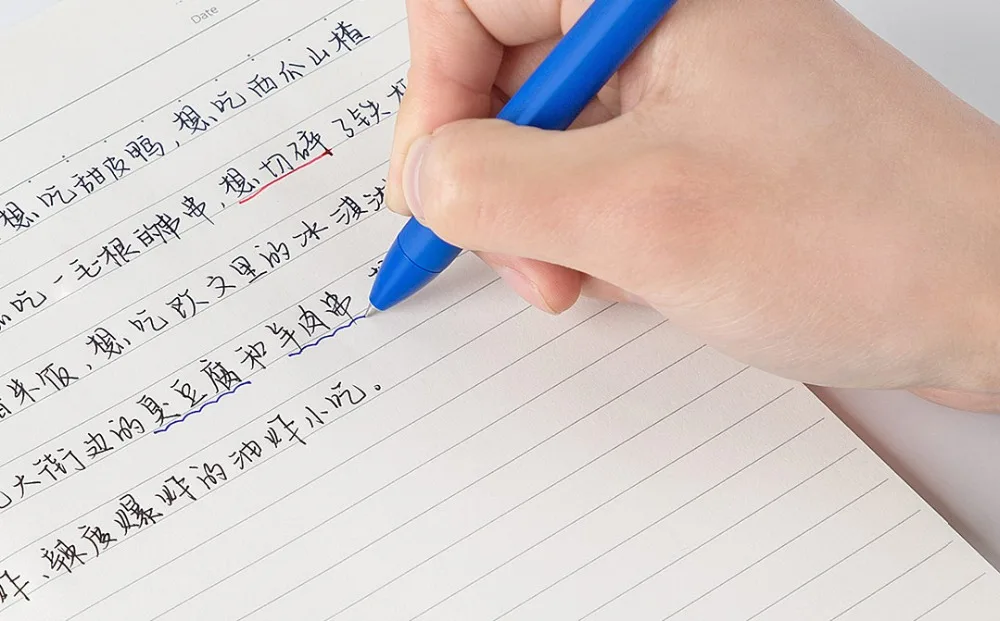 Date
想吃甜皮鸭,想吃西瓜山楂
吃一毛一根的串串,想切碎了铁板
米饭,想吃欧文里的冰淇淋
大街边的臭豆腐和羊肉串
炸、辣度爆炸的油炸小吃。